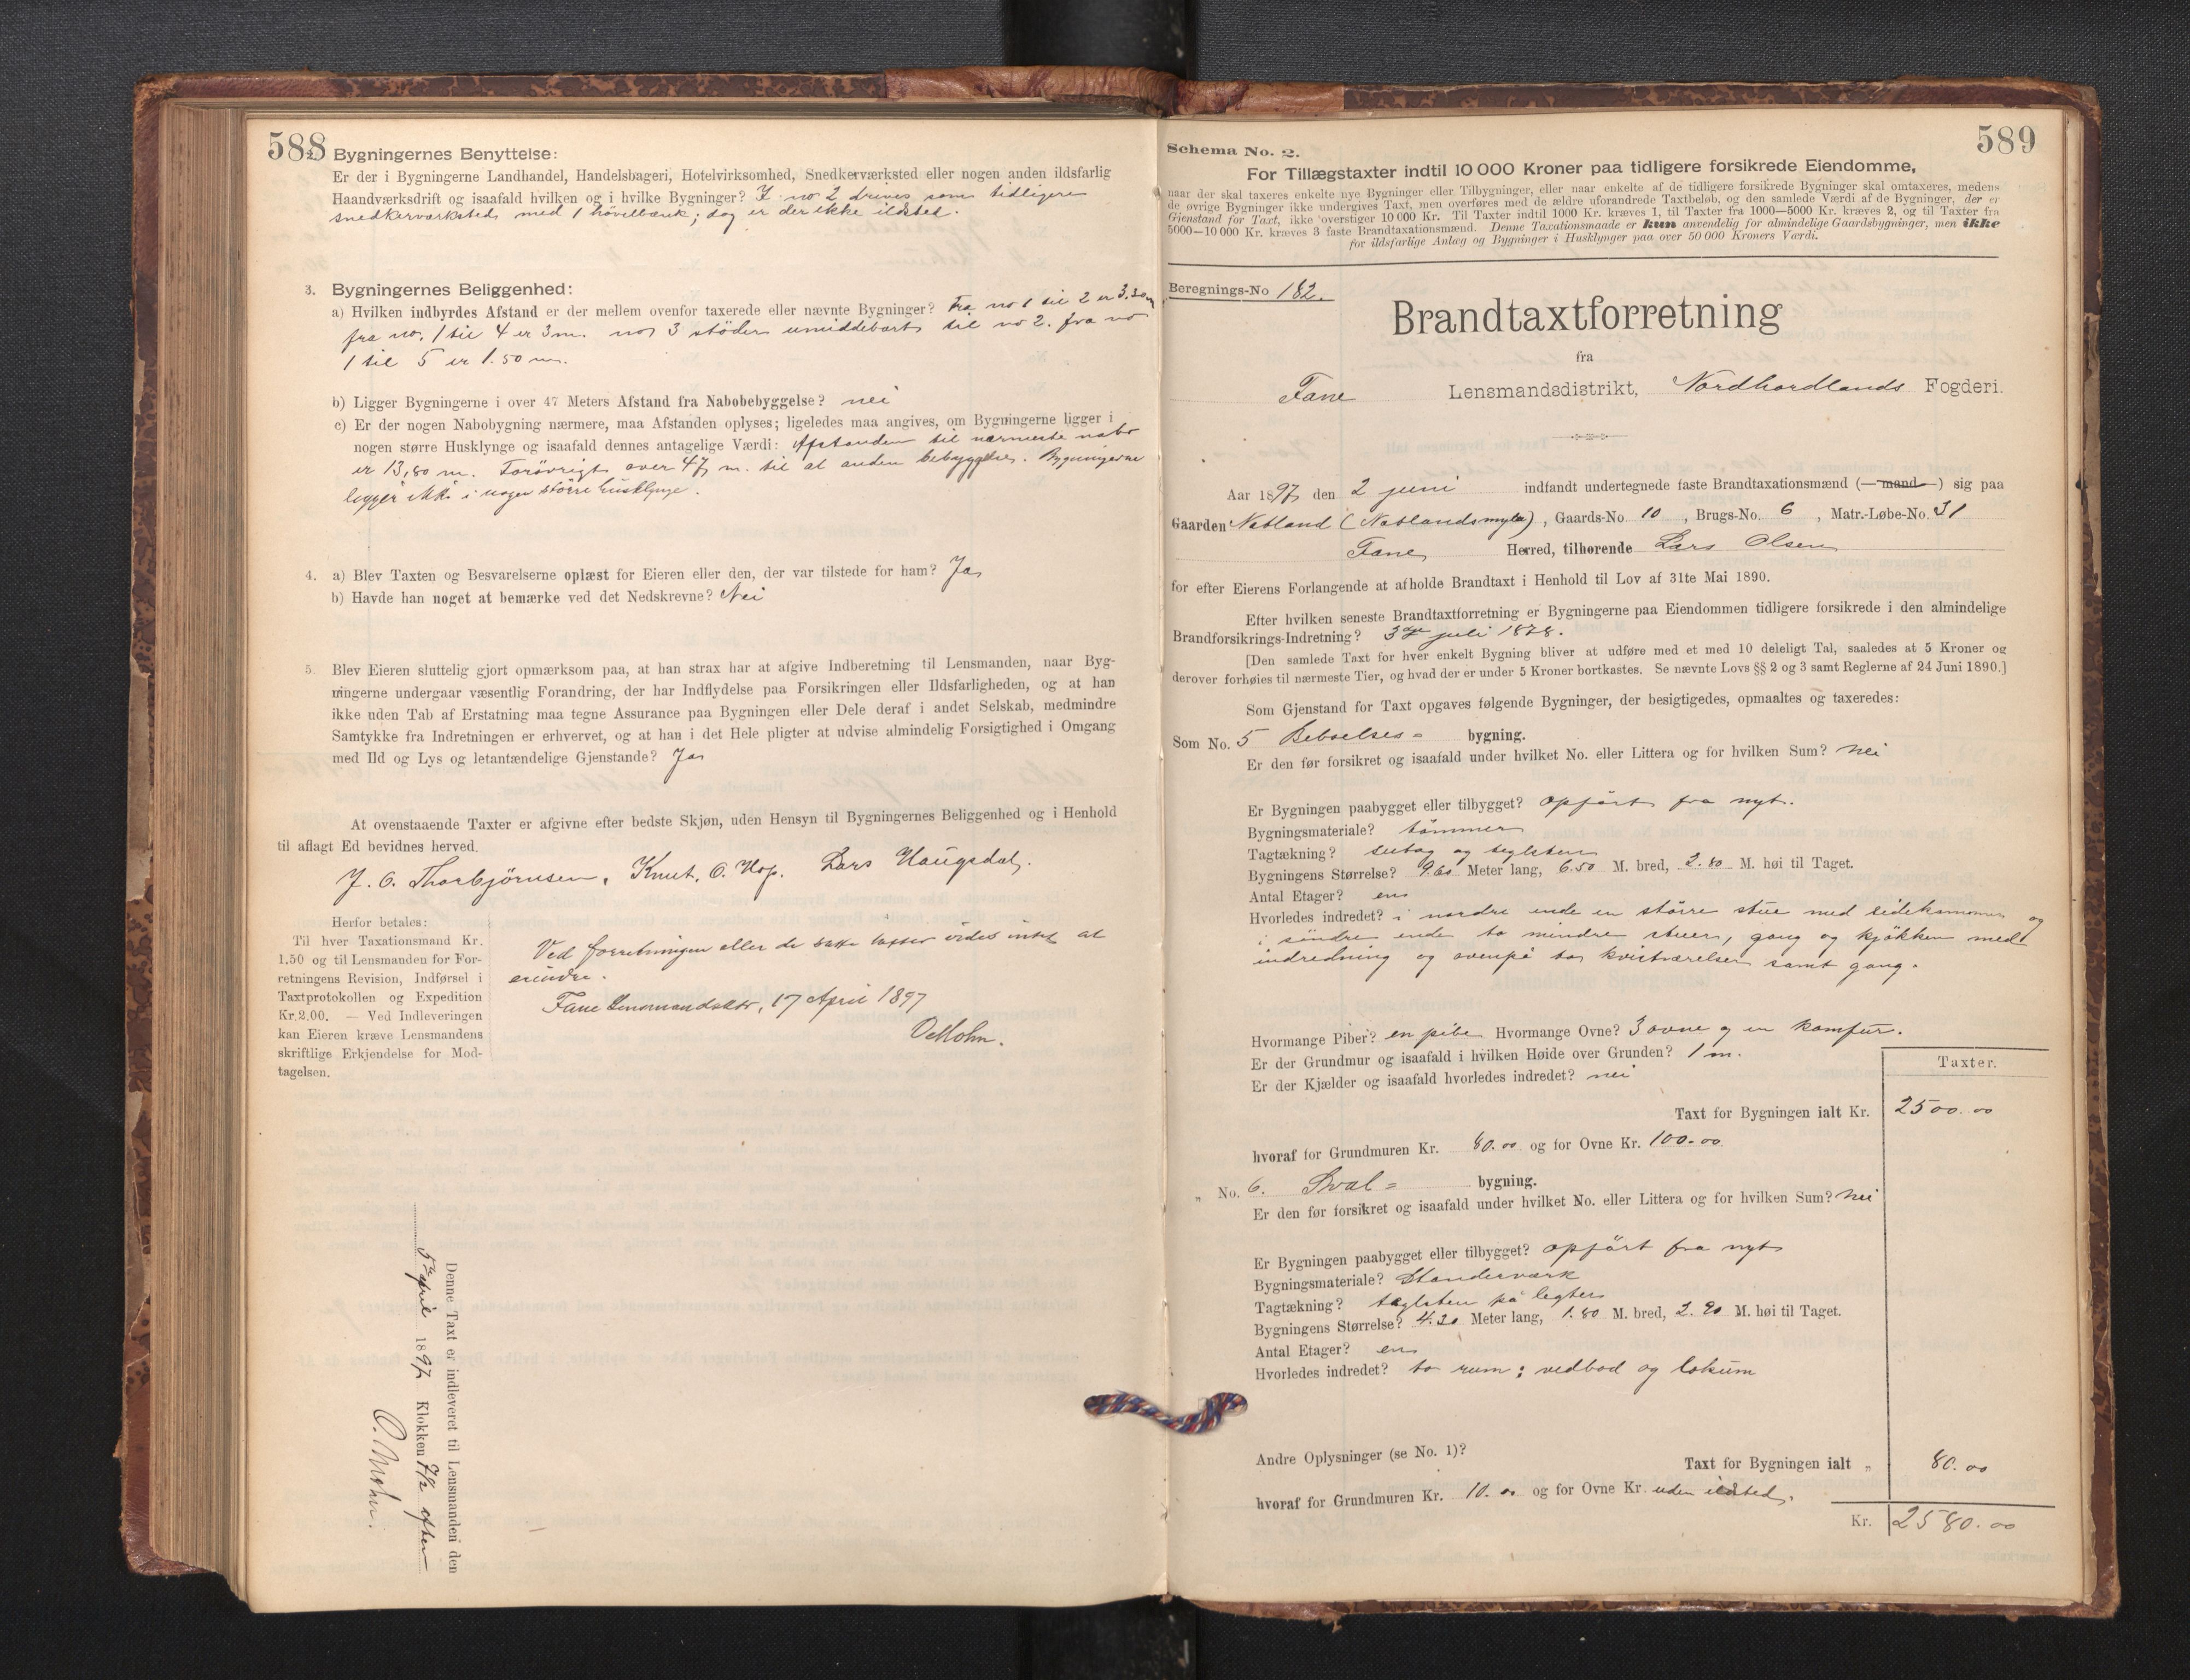 588
2. Bygningernes Benyttelse:
Er der i Bygningerne Landhandel, Handelsbageri, Hotelvirksomhed, Snedkerværksted eller nogen anden ildsfarlig
Haandværksdrift og isaafald hvilken og i hvilke Bygninger? I no 2 drives som tidligere
snedkerværksted med 1 hövelbænk; dog er der ikke ildsted.
3. Bygningernes Beliggenhed:
a) Hvilken indbyrdes Afstand er der mellem ovenfor taxerede eller nævnte Bygninger? Fra no 1 til 2 er 3.30 m
fra no. 1 til 4 er 3 m. no 3 stöder umiddebart til no 2. fra no
1 til 5 er 1.50 m.
b) Ligger Bygningerne i over 47 Meters Afstand fra Nabobebyggelse? nei
c) Er der nogen Nabobygning nærmere, maa Afstanden oplyses; ligeledes maa angives, om Bygningerne ligger i
nogen større Husklynge og isaafald dennes antagelige Værdi: Afstanden til nærmeste nabo
er 13,80 m. Forövrigt over 47 m. til al anden bebyggelse. Bygningerne
ligger ikke i nogen större husklynge.
4. a) Blev Taxten og Besvarelserne oplæst for Eieren eller den, der var tilstede for ham? Ja
b) Havde han noget at bemærke ved det Nedskrevne? Nei
5. Blev Eieren sluttelig gjort opmærksom paa, at han strax har at afgive Indberetning til Lensmanden, naar Byg-
ningerne undergaar væsentlig Forandring, der har Indflydelse paa Forsikringen eller Ildsfarligheden, og at han
ikke uden Tab af Erstatning maa tegne Assurance paa Bygningen eller Dele deraf i andet Selskab, medmindre
Samtykke fra Indretningen er erhvervet, og at han i det Hele pligter at udvise almindelig Forsigtighed i Omgang
med Ild og Lys og letantændelige Gjenstande? Ja
At ovenstaaende Taxter er afgivne efter bedste Skjøn, uden Hensyn til Bygningernes Beliggenhed og i Henhold
til aflagt Ed bevidnes herved.
J. O. Thorbjörnsen, Knut. O. Hop. Lars Haugsdal.
Herfor betales:
Til hver Taxationsmand Kr.
1.50 og til Lensmanden for For-
retningens Revision, Indførsel i
Taxtprotokollen og Expedition
Kr. 2.00. — Ved Indleveringen
kan Eieren kræve Lensmandens
skriftlige Erkjendelse for Mod-
tagelsen.
Ved forretningen eller de satte taxter vides intet at
erindre.
Fane Lensmandsktr, 17 April 1897
O Mohn.
Denne Taxt er indleveret til Lensmanden den
5te april 1897 Klokken 7 1/2 efter
O. Mohn.
589
Schema No. 2.
For Tillægstaxter indtil 10 000 Kroner paa tidligere forsikrede Eiendomme,
naar der skal taxeres enkelte nye Bygninger eller Tilbygninger, eller naar enkelte af de tidligere forsikrede Bygninger skal omtaxeres, medens
de øvrige Bygninger ikke undergives Taxt, men overføres med de ældre uforandrede Taxtbeløb, og den samlede Værdi af de Bygninger, der er
Gjenstand for Taxt, ikke overstiger 10 000 Kr. Til Taxter indtil 1000 Kr. kræves 1, til Taxter fra 1000—5000 Kr. kræves 2, og til Taxter fra
5000—10 000 Kr. kræves 3 faste Brandtaxationsmænd. Denne Taxationsmaade er kun anvendelig for almindelige Gaardsbygninger, men ikke
for ildsfarlige Anlæg og Bygninger i Husklynger paa over 50 000 Kroners Værdi.
Beregnings-No 182.
Brandtaxtforretning
fra
Fane Lensmandsdistrikt, Nordhordlands Fogderi.
Aar 1897 den 2 juni indfandt undertegnede faste Brandtaxationsmænd (—mand—) sig paa
Gaarden Natland (Natlandsmyra), Gaards-No. 10, Brugs-No. 6, Matr.-Løbe-No. 31
Fane Herred, tilhørende Lars Olsen
for efter Eierens Forlangende at afholde Brandtaxt i Henhold til Lov af 31te Mai 1890.
Efter hvilken seneste Brandtaxtforretning er Bygningerne paa Eiendommen tidligere forsikrede i den almindelige
Brandforsikrings-Indretning? 3dje juli 1878.
[Den samlede Taxt for hver enkelt Bygning bliver at udføre med et med 10 deleligt Tal, saaledes at 5 Kroner og
derover forhøies til nærmeste Tier, og hvad der er under 5 Kroner bortkastes. Se nævnte Lovs §§ 2 og 3 samt Reglerne af 24 Juni 1890.]
Som Gjenstand for Taxt opgaves følgende Bygninger, der besigtigedes, opmaaltes og taxeredes:
Som No. 5 Beboelses= bygning.
Er den før forsikret og isaafald under hvilket No. eller Littera og for hvilken Sum? nei
Er Bygningen paabygget eller tilbygget? opfört fra nyt.
Bygningsmateriale? tömmer
Tagtækning? sutag og teglsten
Bygningens Størrelse? 9.60 Meter lang, 6.50 M. bred, 2.80 M. høi til Taget.
Antal Etager? en
Hvorledes indret? i nordre ende en större stue med sidekammer og
i söndre ende to mindre stuer, gang og kjökken med
indredning og ovenpå to kvistværelser samt gang.
Hvormange Piber? en pibe Hvormange Ovne? 3 ovne og en komfur.
Er der Grundmur og isaafald i hvilken Høide over Grunden? 1 m.
Er der Kjælder og isaafald hvorledes indredet? nei
Taxter.
Taxt for Bygningen ialt Kr. 2500.00
hvoraf for Grundmuren Kr. 80.00 og for Ovne Kr. 100.00
„ No. 6. Sval= bygning.
Er den før forsikret og isaafald under hvilket No. eller Littera og for hvilken Sum? nei
Er Bygningen paabygget eller tilbygget? opfört fra nyt
Bygningsmateriale? Standerværk
Tagtækning? teglsten på legter
Bygningens Størrelse? 4.20 Meter lang, 1.80 M. bred, 2.20 M. høi til Taget.
Antal Etager? en
Hvorledes indredet? to rum: vedbod og lokum
Andre Oplysninger (se No. 1)?
Taxt for Bygningen ialt „ 80.00
hvoraf for Grundmuren Kr. 10.00 og for Ovne Kr. uden ildsted.
Kr. 2580.00